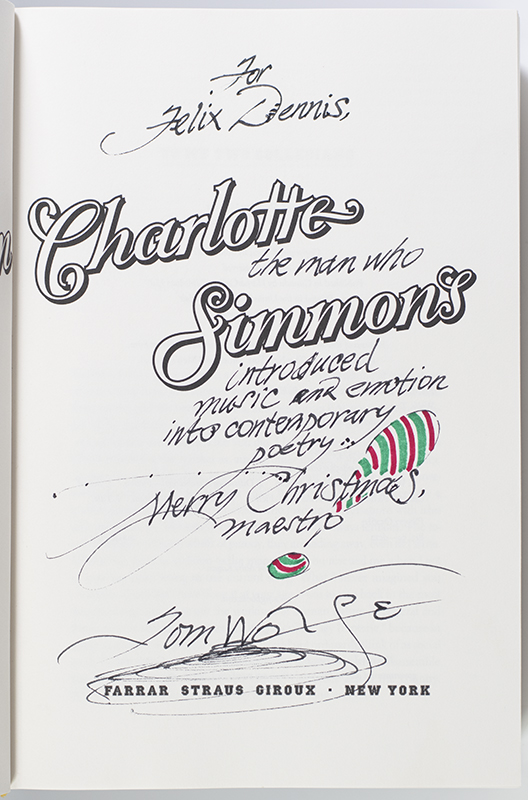 For
Felix Dennis,
Charlotte
the man who
Simmons
introduced
music and emotion
into contemporary
poetry...
Merry Christmas,
maestro
Tom Wolfe
FARRAR STRAUS GIROUX · NEW YORK